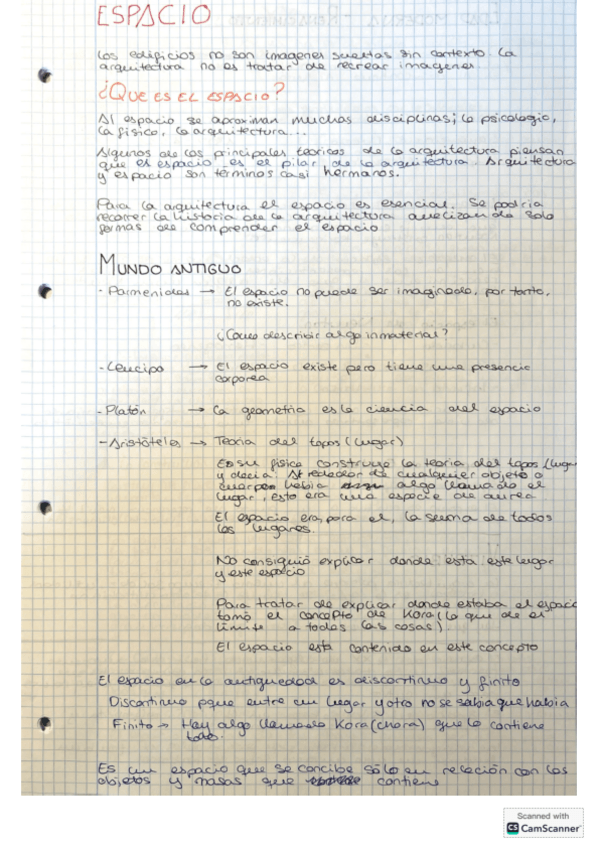 ESPACIO
Los edificios no son imagenes sueltas sin contexto. La
arquitectura no es tratar de recrear imagenes
¿QUE ES EL ESPACIO?
Al espacio se aproximan muchas disciplinas; la psicologia,
la física, la arquitectura...
Algunos de los principales teoricos de la arquitectura piensan
que el espacio es el pilar de la arquitectura. Arquitectura
y espacio son términos casi hermanos.
Para la arquitectura el espacio es esencial. Se podria
recorrer la historia de la arquitectura analizando solo
formas de comprender el espacio
MUNDO ANTIGUO
- Parmenides → El espacio no puede ser imaginado, por tanto,
no existe.
¿Como describir algo inmaterial?
- Leucipo → El espacio existe pero tiene una presencia
corporea
- Platón → La geometria es la ciencia del espacio
- Aristóteles → Teoria del topos (lugar)
En su fisica construye la teoria del topos (lugar
y decia: Alrededor de cualquier objeto o
cuerpo habia algo llamado el
lugar, esto era una especie de aurea
El espacio era, para el, la suma de todos
los lugares.
No consiguió explicar donde esta este lugar
y este espacio
Para tratar de explicar donde estaba el espacio
tomó el concepto de Kora (lo que da el
limite a todas las cosas)
El espacio esta contenido en este concepto
El espacio en la antiguedad es discontinuo y finito
Discontinuo pque entre un lugar y otro no se sabia que habia
Finito → Hay algo llamado Kora (chora) que lo contiene
todo.
Es un espacio que se concibe sólo en relación con los
objetos y masas que contiene
Scanned with
CS CamScanner